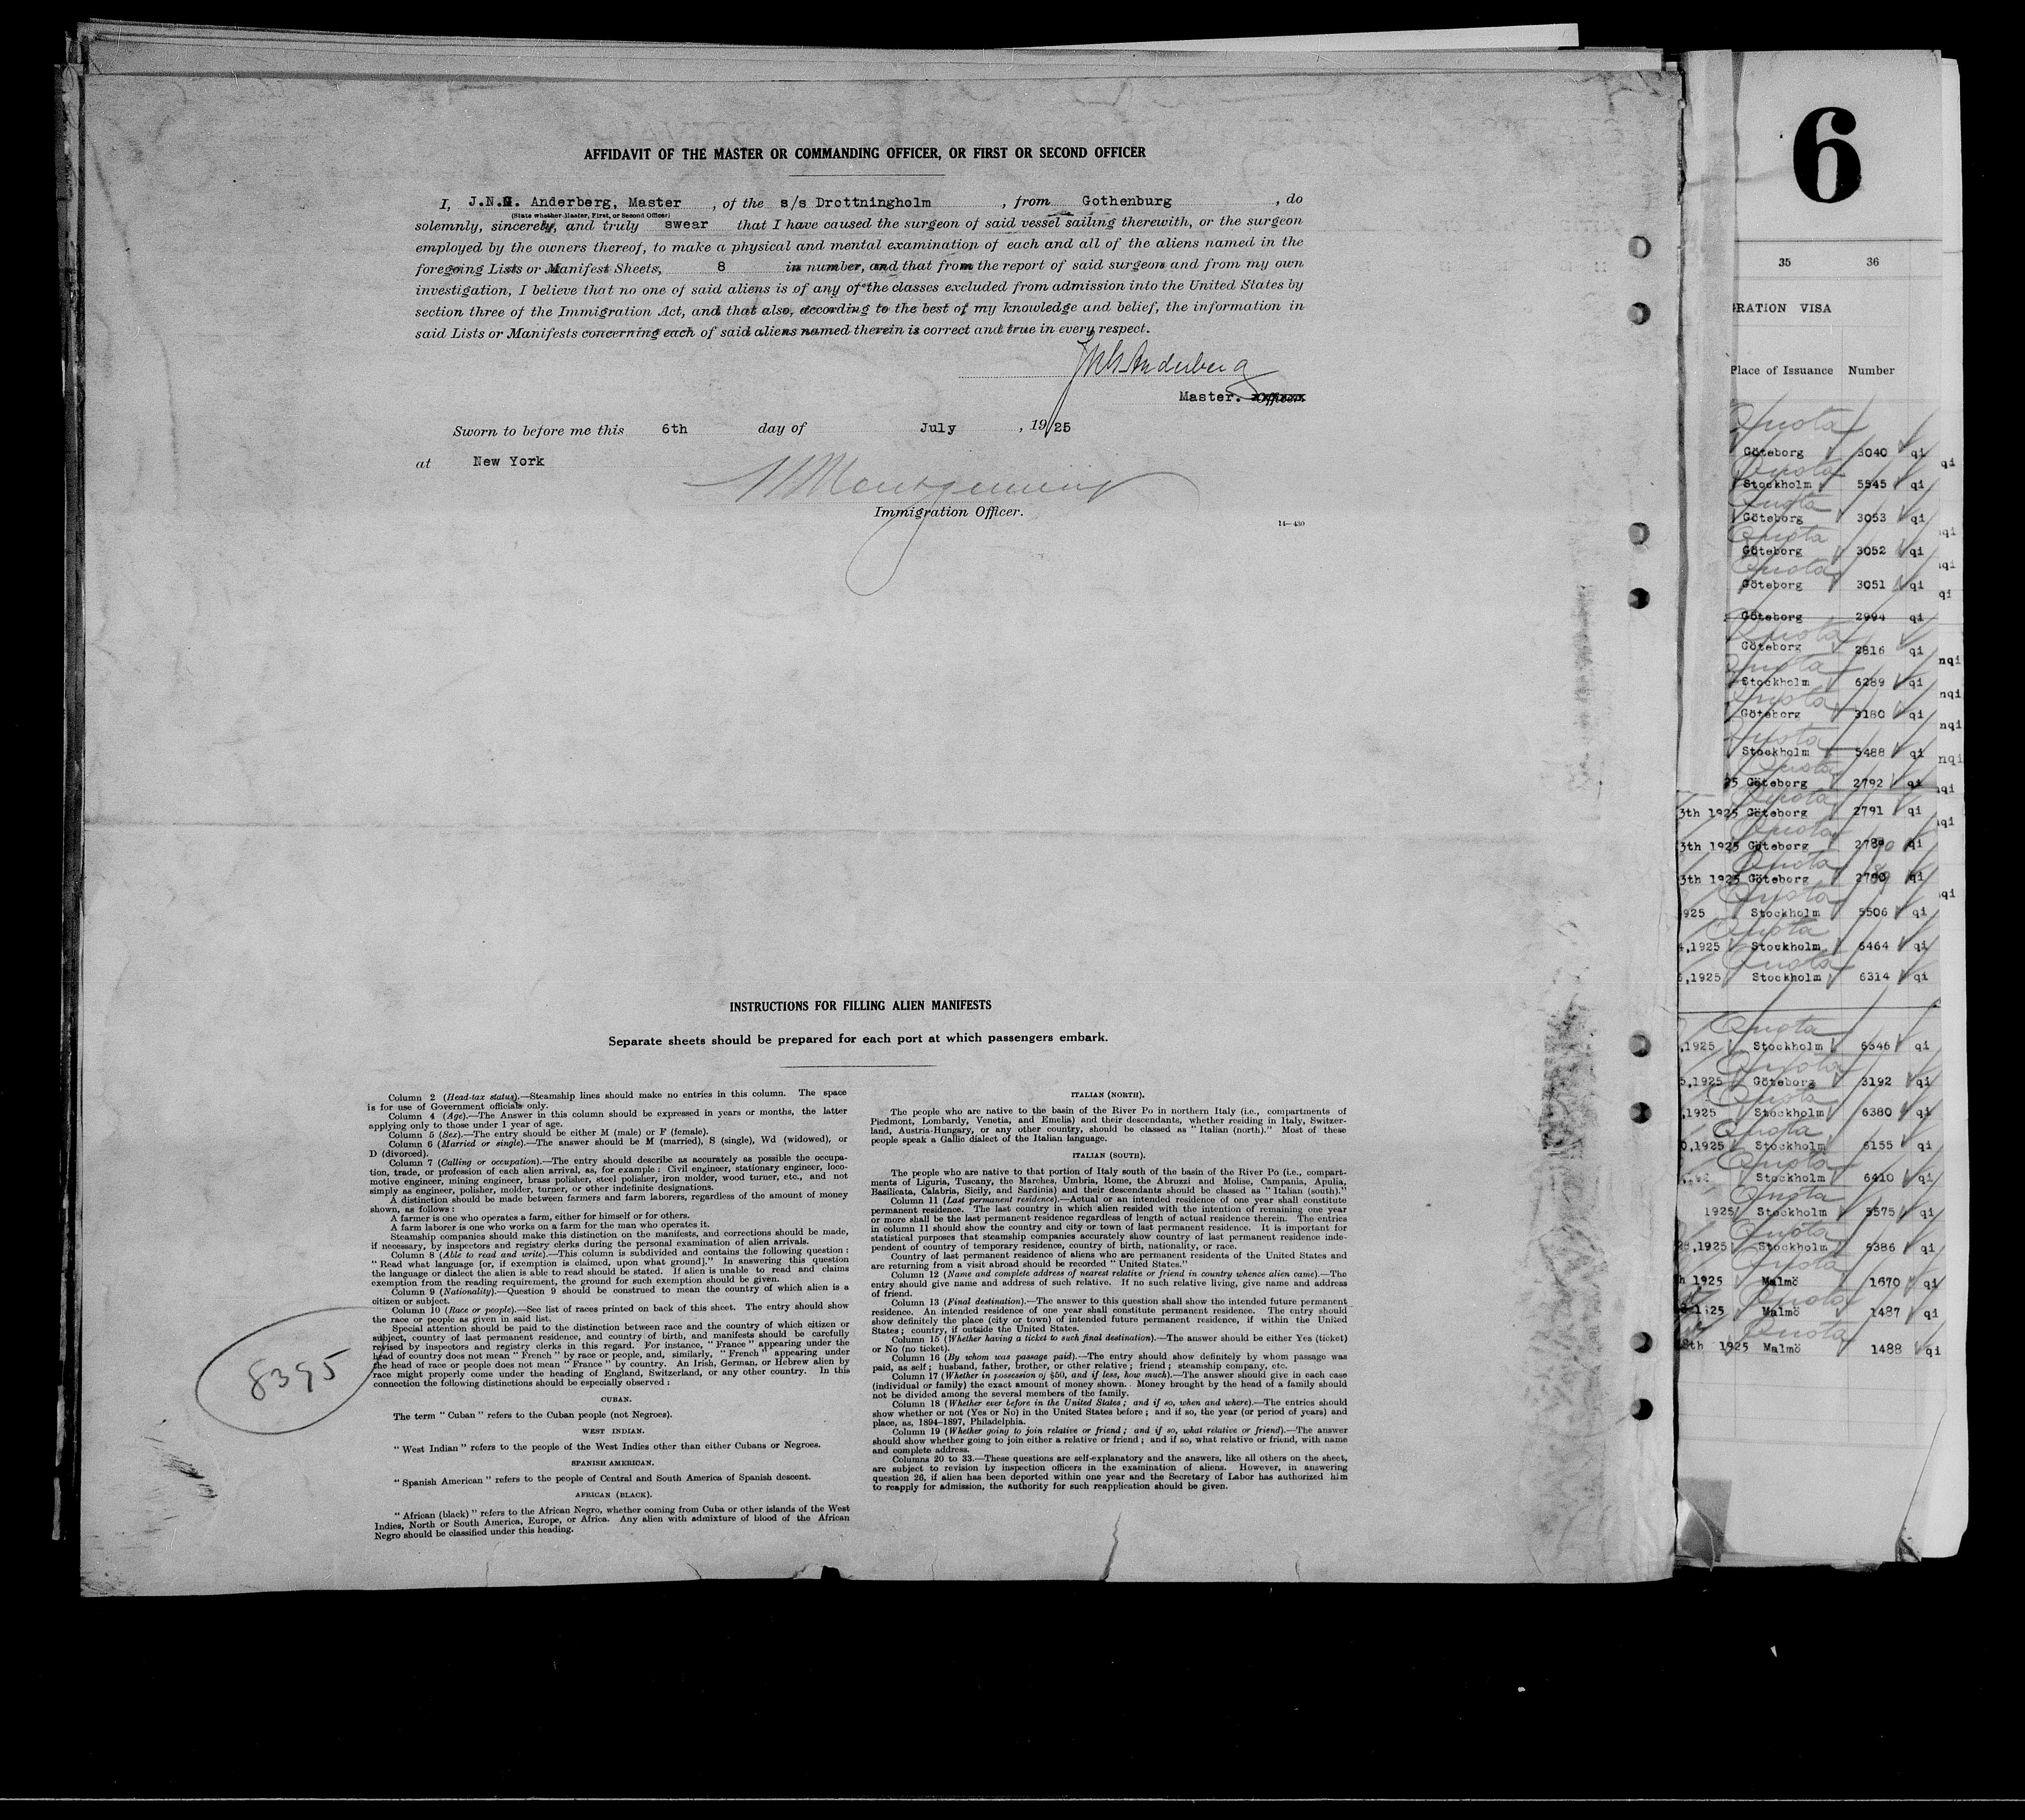 AFFIDAVIT OF THE MASTER OR COMMANDING OFFICER, OR FIRST OR SECOND OFFICER
I, J.N.G. Anderberg, Master, of the s/s Drottningholm, from Gothenburg, do
(State whether Master, First, or Second Officer)
solemnly, sincerely, and truly swear that I have caused the surgeon of said vessel sailing therewith, or the surgeon
employed by the owners thereof, to make a physical and mental examination of each and all of the aliens named in the
foregoing Lists or Manifest Sheets, 8 in number, and that from the report of said surgeon and from my own
investigation, I believe that no one of said aliens is of any of the classes excluded from admission into the United States by
section three of the Immigration Act, and that also, according to the best of my knowledge and belief, the information in
said Lists or Manifests concerning each of said aliens named therein is correct and true in every respect.
JNGAnderberg
Master. Officer.
Sworn to before me this 6th day of July, 1925
at New York
Montgomery
Immigration Officer.
14—430
INSTRUCTIONS FOR FILLING ALIEN MANIFESTS
Separate sheets should be prepared for each port at which passengers embark.
Column 2 (Head-tax status).—Steamship lines should make no entries in this column. The space
is for use of Government officials only.
Column 4 (Age).—The Answer in this column should be expressed in years or months, the latter
applying only to those under 1 year of age.
Column 5 (Sex).—The entry should be either M (male) or F (female).
Column 6 (Married or single).—The answer should be M (married), S (single), Wd (widowed), or
D (divorced).
Column 7 (Calling or occupation).—The entry should describe as accurately as possible the occupa-
tion, trade, or profession of each alien arrival, as, for example: Civil engineer, stationary engineer, loco-
motive engineer, mining engineer, brass polisher, steel polisher, iron molder, wood turner, etc., and not
simply as engineer, polisher, molder, turner, or other indefinite designations.
A distinction should be made between farmers and farm laborers, regardless of the amount of money
shown, as follows:
A farmer is one who operates a farm, either for himself or for others.
A farm laborer is one who works on a farm for the man who operates it.
Steamship companies should make this distinction on the manifests, and corrections should be made,
if necessary, by inspectors and registry clerks during the personal examination of alien arrivals.
Column 8 (Able to read and write).—This column is subdivided and contains the following question:
"Read what language [or, if exemption is claimed, upon what ground]." In answering this question
the language or dialect the alien is able to read should be stated. If alien is unable to read and claims
exemption from the reading requirement, the ground for such exemption should be given.
Column 9 (Nationality).—Question 9 should be construed to mean the country of which alien is a
citizen or subject.
Column 10 (Race or people).—See list of races printed on back of this sheet. The entry should show
the race or people as given in said list.
Special attention should be paid to the distinction between race and the country of which citizen or
subject, country of last permanent residence, and country of birth, and manifests should be carefully
revised by inspectors and registry clerks in this regard. For instance, "France" appearing under the
head of country does not mean "French" by race or people, and, similarly, "French" appearing under
the head of race or people does not mean "France" by country. An Irish, German, or Hebrew alien by
race might properly come under the heading of England, Switzerland, or any other country. In this
connection the following distinctions should be especially observed:
CUBAN.
The term "Cuban" refers to the Cuban people (not Negroes).
WEST INDIAN.
"West Indian" refers to the people of the West Indies other than either Cubans or Negroes.
SPANISH AMERICAN.
"Spanish American" refers to the people of Central and South America of Spanish descent.
AFRICAN (BLACK).
"African (black)" refers to the African Negro, whether coming from Cuba or other islands of the West
Indies, North or South America, Europe, or Africa. Any alien with admixture of blood of the African
Negro should be classified under this heading.
8395
ITALIAN (NORTH).
The people who are native to the basin of the River Po in northern Italy (i.e., compartments of
Piedmont, Lombardy, Venetia, and Emelia) and their descendants, whether residing in Italy, Switzer-
land, Austria-Hungary, or any other country, should be classed as "Italian (north)." Most of these
people speak a Gallic dialect of the Italian language.
ITALIAN (SOUTH).
The people who are native to that portion of Italy south of the basin of the River Po (i.e., compart-
ments of Liguria, Tuscany, the Marches, Umbria, Rome, the Abruzzi and Molise, Campania, Apulia,
Basilicata, Calabria, Sicily, and Sardinia) and their descendants should be classed as "Italian (south)."
Column 11 (Last permanent residence).—Actual or an intended residence of one year shall constitute
permanent residence. The last country in which alien resided with the intention of remaining one year
or more shall be the last permanent residence regardless of length of actual residence therein. The entries
in column 11 should show the country and city or town of last permanent residence. It is important for
statistical purposes that steamship companies accurately show country of last permanent residence inde-
pendent of country of temporary residence, country of birth, nationality, or race.
Country of last permanent residence of aliens who are permanent residents of the United States and
are returning from a visit abroad should be recorded "United States."
Column 12 (Name and complete address of nearest relative or friend in country whence alien came).—The
entry should give name and address of such relative. If no such relative living, give name and address
of friend.
Column 13 (Final destination).—The answer to this question shall show the intended future permanent
residence. An intended residence of one year shall constitute permanent residence. The entry should
show definitely the place (city or town) of intended future permanent residence, if within the United
States; country, if outside the United States.
Column 15 (Whether having a ticket to such final destination).—The answer should be either Yes (ticket)
or No (no ticket).
Column 16 (By whom was passage paid).—The entry should show definitely by whom passage was
paid, as self; husband, father, brother, or other relative; friend; steamship company, etc.
Column 17 (Whether in possession of $50, and if less, how much).—The answer should give in each case
(individual or family) the exact amount of money shown. Money brought by the head of a family should
not be divided among the several members of the family.
Column 18 (Whether ever before in the United States; and if so, when and where).—The entries should
show whether or not (Yes or No) in the United States before; and if so, the year (or period of years) and
place, as, 1894–1897, Philadelphia.
Column 19 (Whether going to join relative or friend; and if so, what relative or friend).—The answer
should show whether going to join either a relative or friend; and if so, what relative or friend, with name
and complete address.
Columns 20 to 33.—These questions are self-explanatory and the answers, like all others on the sheet,
are subject to revision by inspection officers in the examination of aliens. However, in answering
question 26, if alien has been deported within one year and the Secretary of Labor has authorized him
to reapply for admission, the authority for such reapplication should be given.
6
35 36
RATION VISA
Place of Issuance Number
Quota
Göteborg 3040 qi
Quota
Stockholm 5545 qi
Quota
Göteborg 3053 qi
Quota
Göteborg 3052 qi
Quota
Göteborg 3051 qi
Göteborg 2994 qi
Quota
Göteborg 2816 qi
Quota
Stockholm 6289 qi
Quota
Göteborg 3180 qi
Quota
Stockholm 5488 qi
Quota
25 Göteborg 2792 qi
Quota
3th 1925 Göteborg 2791 qi
Quota
3th 1925 Göteborg 2790 qi
Quota
3th 1925 Göteborg 2789 qi
Quota
925 Stockholm 5506 qi
Quota
4,1925 Stockholm 6464 qi
Quota
,1925 Stockholm 6314 qi
Quota
,1925 Stockholm 6346 qi
Quota
5,1925 Göteborg 3192 qi
Quota
,1925 Stockholm 6380 qi
Quota
0,1925 Stockholm 6155 qi
Quota
Stockholm 6410 qi
Quota
1925 Stockholm 5575 qi
Quota
28,1925 Stockholm 6386 qi
Quota
h 1925 Malmö 1670 qi
Quota
1925 Malmö 1487 qi
Quota
8th 1925 Malmö 1488 qi
qi
qi
qi
qi
nqi
nqi
nqi
nqi
qi
qi
qi